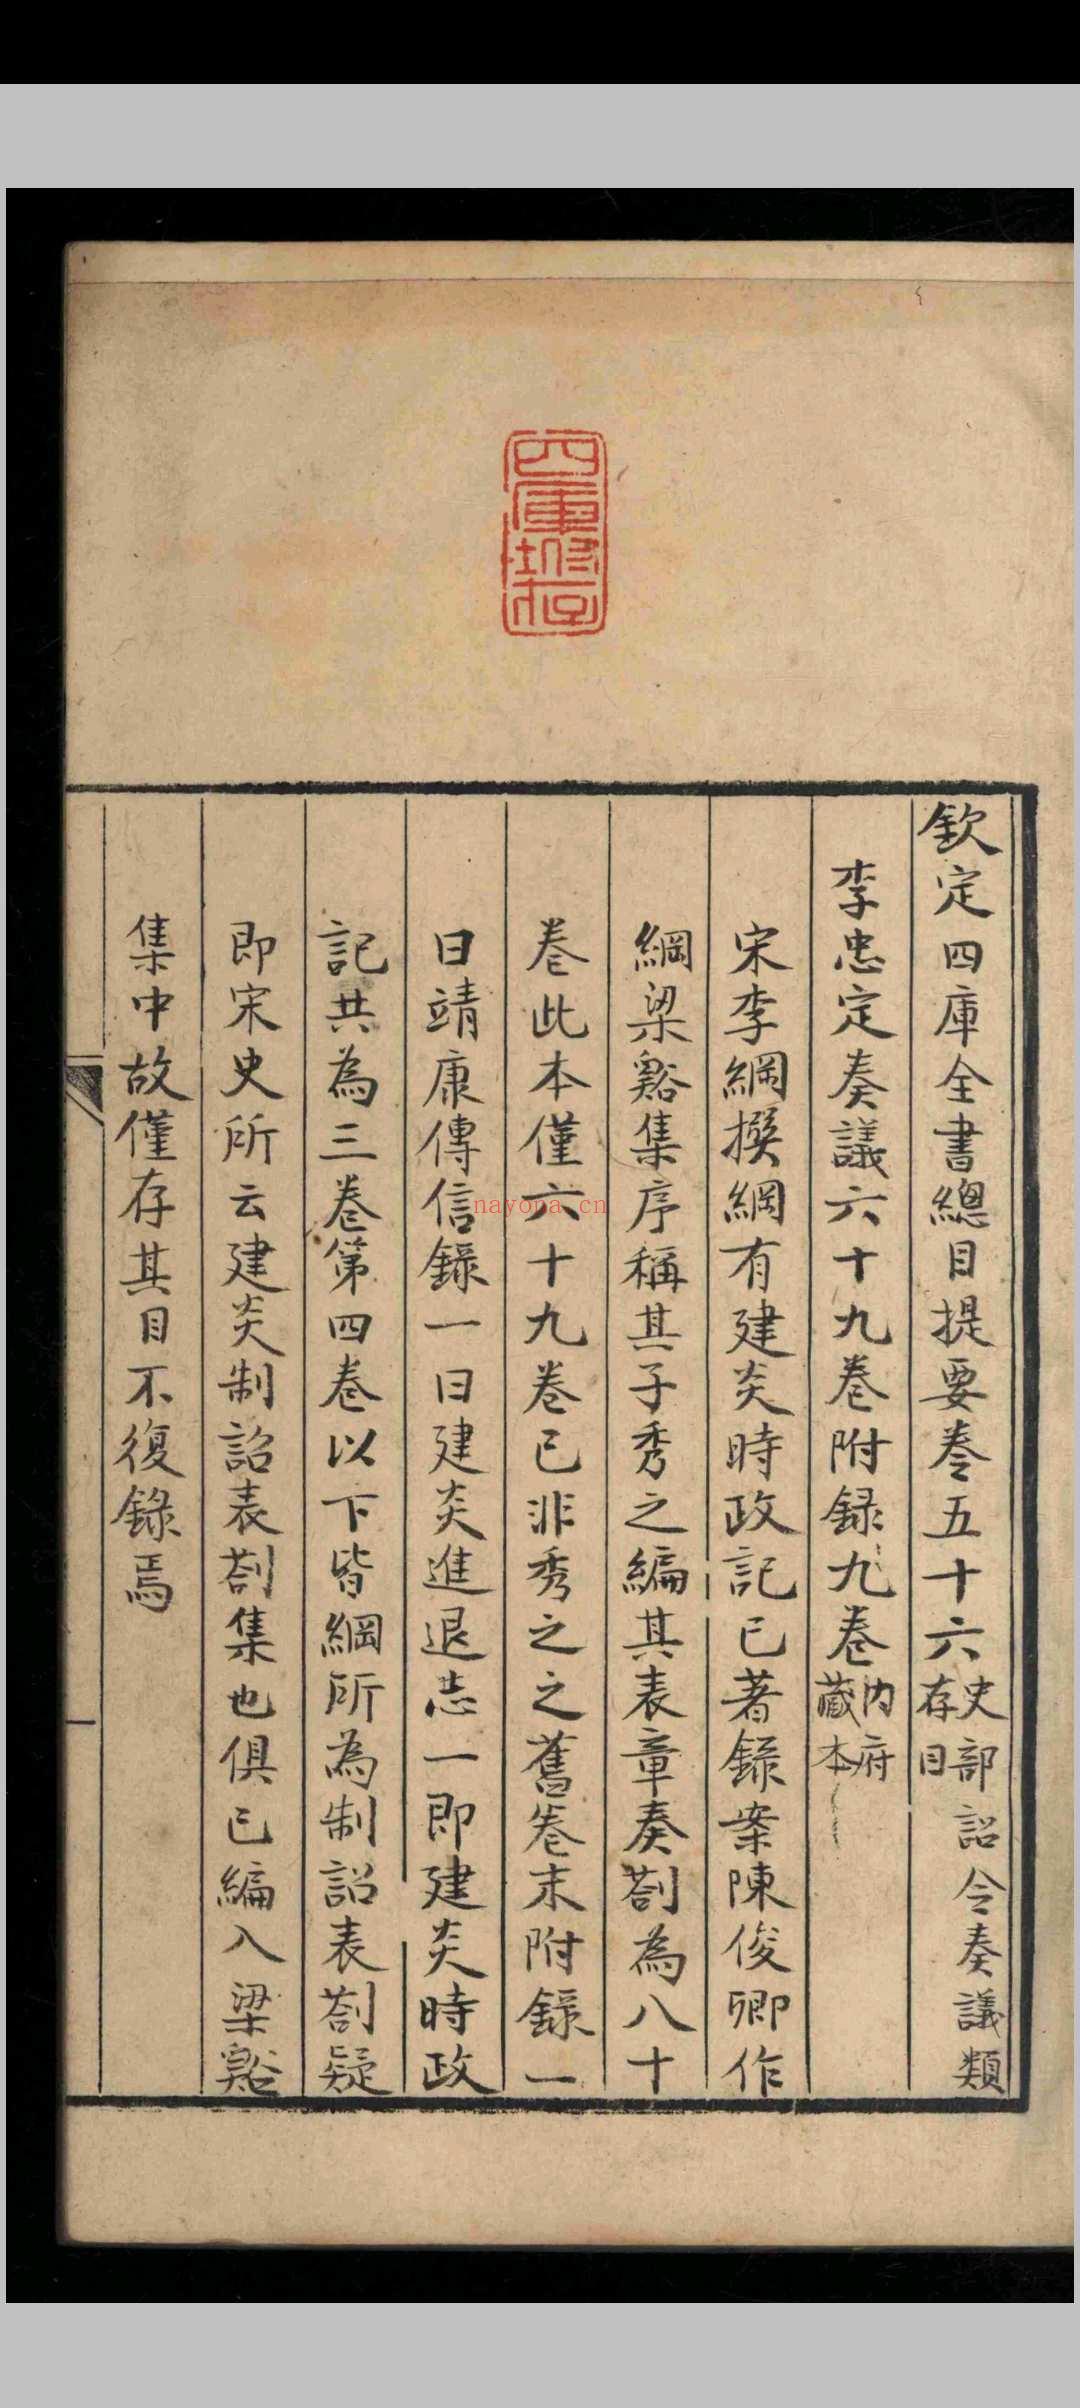 四庫附存
欽定四庫全書總目提要卷五十六史部詔令奏議類存目
李忠定奏議六十九卷附録九卷內府藏本
宋李綱撰綱有建炎時政記已著錄案陳俊卿作
綱梁谿集序稱其子秀之編其表章奏劄為八十
卷此本僅六十九卷已非秀之之舊卷末附錄一
曰靖康傳信錄一曰建炎進退志一即建炎時政
記共為三卷第四卷以下皆綱所為制詔表劄疑
即宋史所云建炎制詔表劄集也俱已編入梁谿
集中故僅存其目不復錄焉
一
nayona.cn